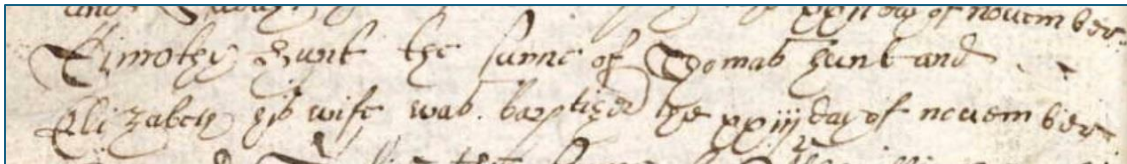 xxii day of november
Timothy Hunt the sunne of Thomas Hunt and
Elizabeth his wife was baptized the xxiij day of november
the